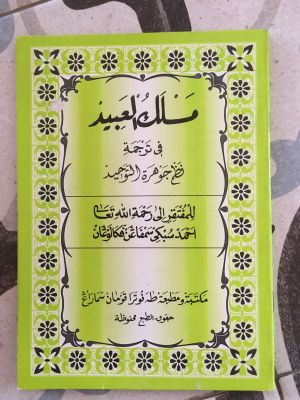 مسلك العبيد
في ترجمة
نظم جوهرة التوحيد
للمفتقر إلى رحمة الله تعالى
احمد سبكي مسفاعن فكالوڠان
مكتبة ومطبعة طه فوترا قومان سماراڠ
حقوق الطبع محفوظة